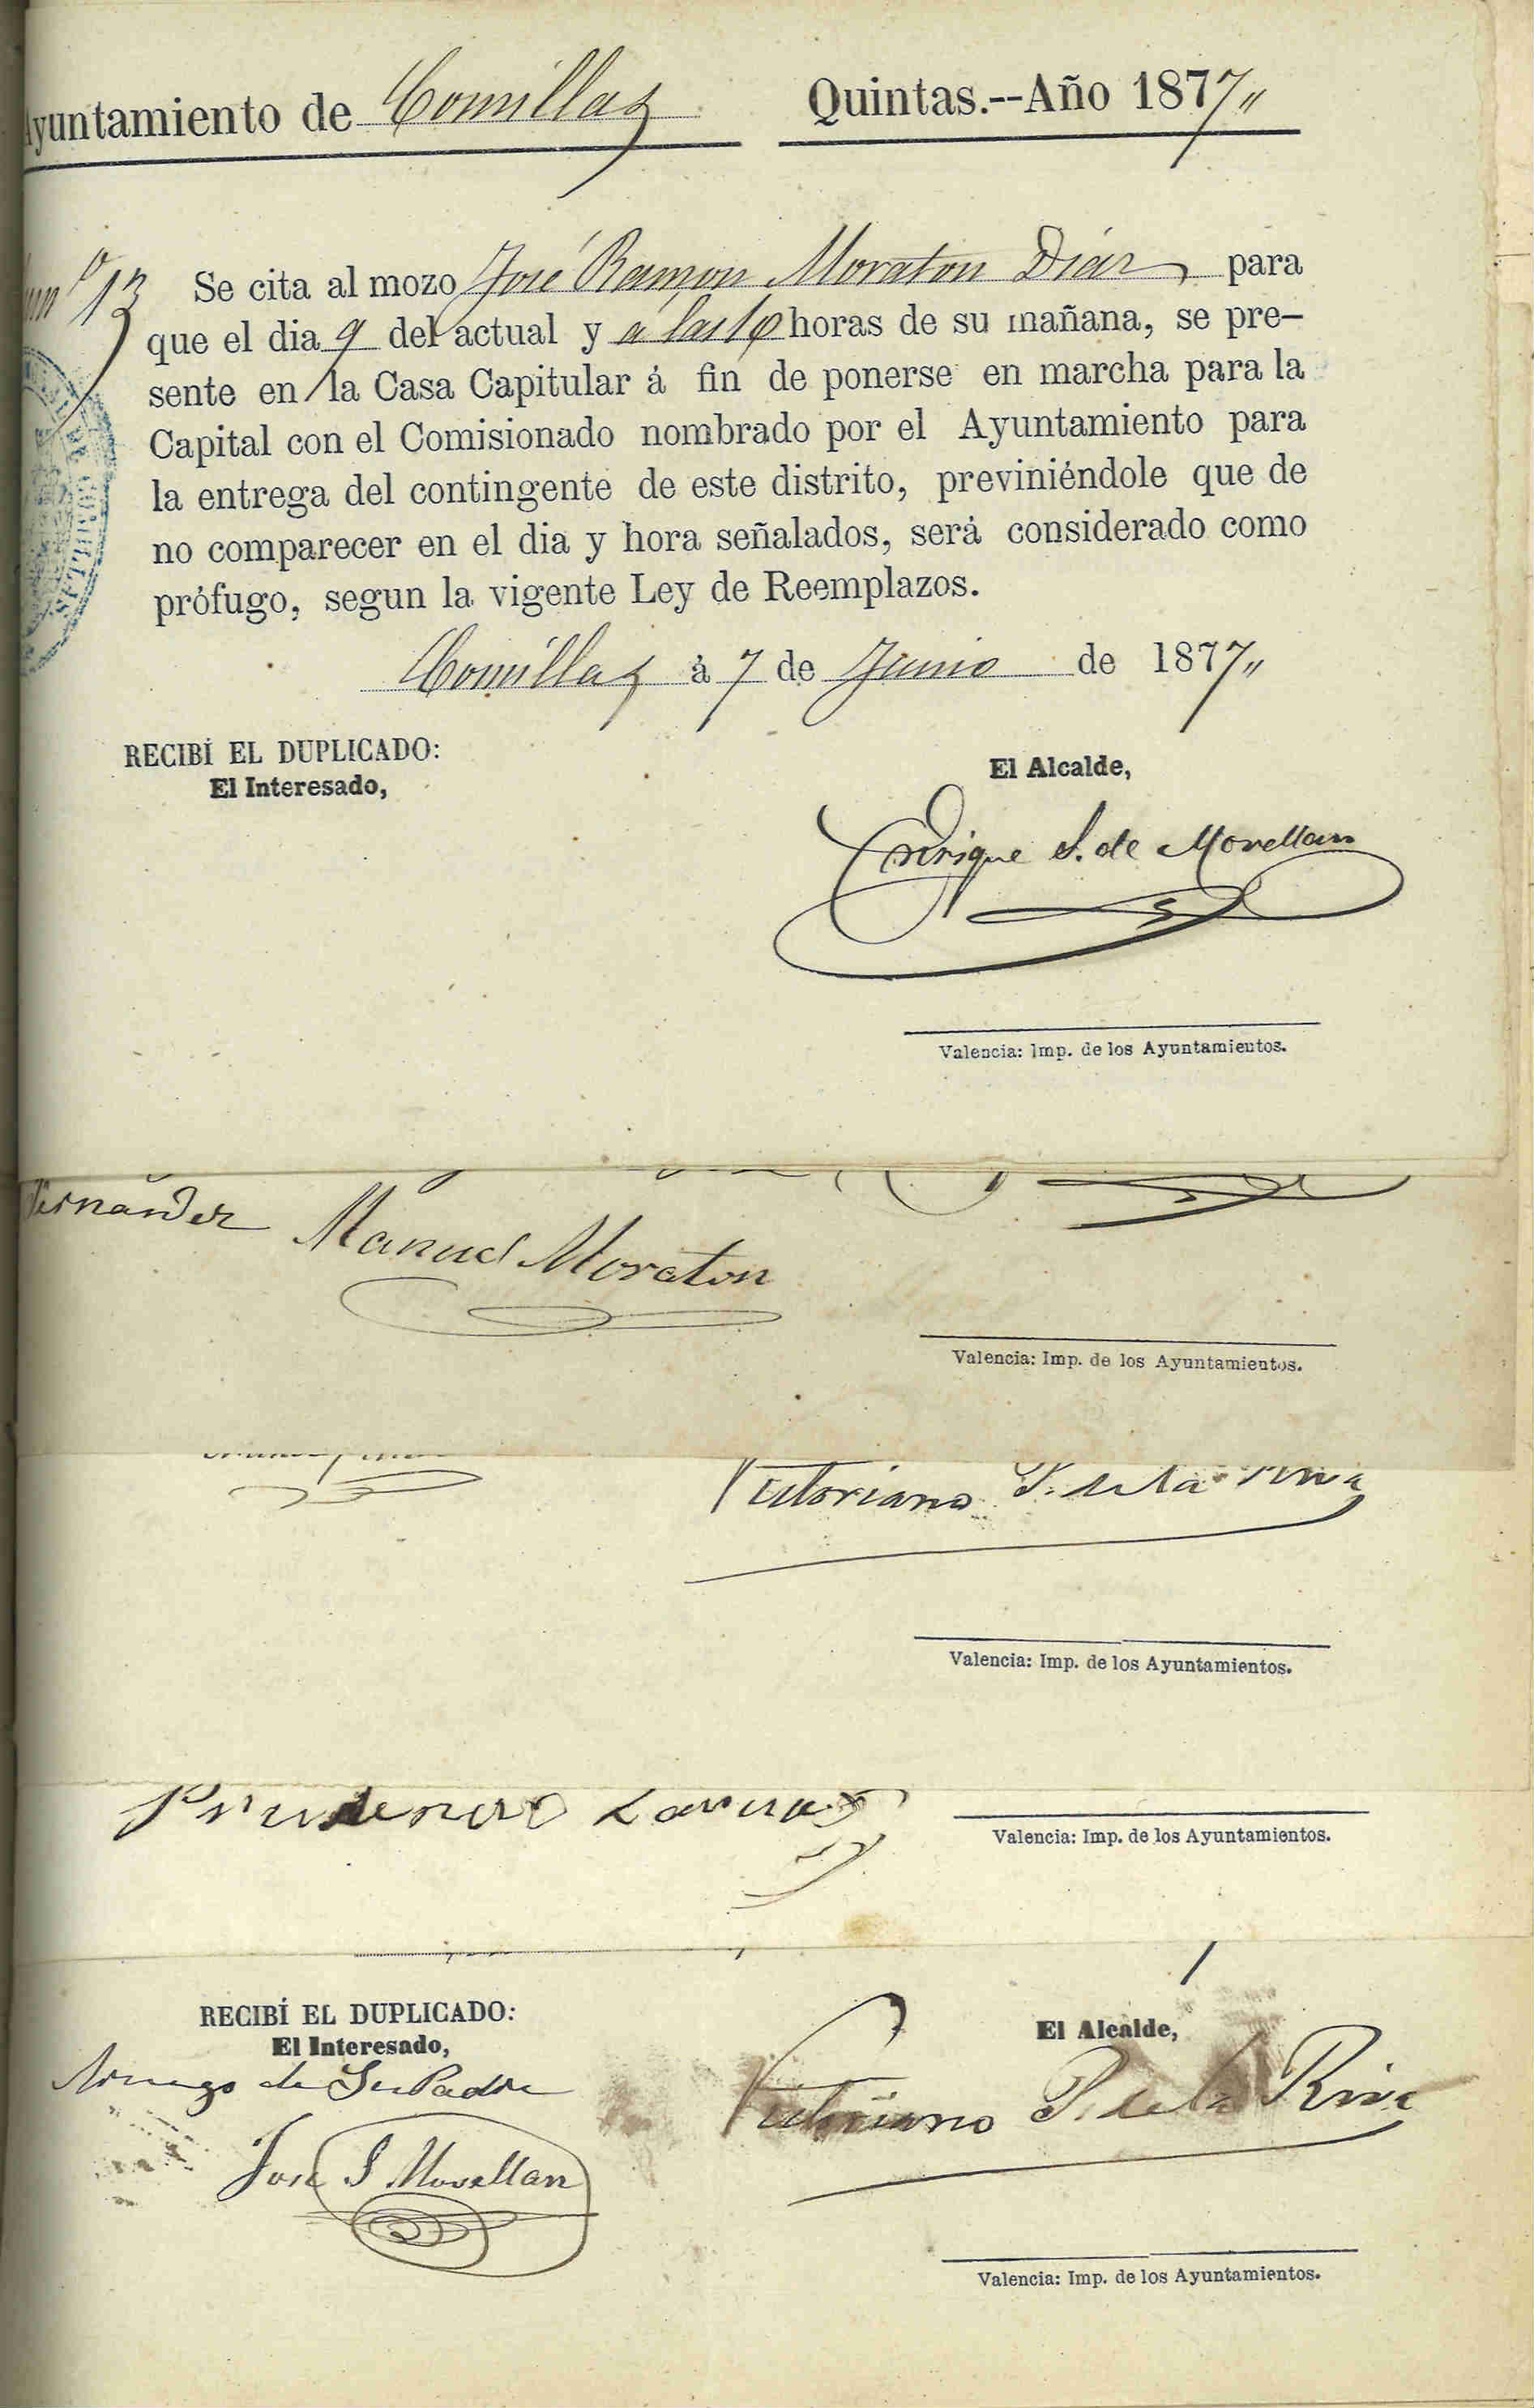 Ayuntamiento de Comillas Quintas.--Año 1877
13 Se cita al mozo José Ramon Moraton Diaz, para
que el dia 9 del actual y á las 10 horas de su mañana, se pre-
sente en la Casa Capitular á fin de ponerse en marcha para la
Capital con el Comisionado nombrado por el Ayuntamiento para
la entrega del contingente de este distrito, previniéndole que de
no comparecer en el dia y hora señalados, será considerado como
prófugo, segun la vigente Ley de Reemplazos.
Comillas á 7 de Junio de 1877
RECIBÍ EL DUPLICADO:
El Interesado,
El Alcalde,
Enrique S. de Movellan
Valencia: Imp. de los Ayuntamientos.
Fernandez Manuel Moraton
Valencia: Imp. de los Ayuntamientos.
Victoriano P. de la Riva
Valencia: Imp. de los Ayuntamientos.
Prudencio
Valencia: Imp. de los Ayuntamientos.
RECIBÍ EL DUPLICADO:
El Interesado,
El Alcalde,
A ruego de Su Padre
Victoriano P. de la Riva
Jose S Movellan
Valencia: Imp. de los Ayuntamientos.